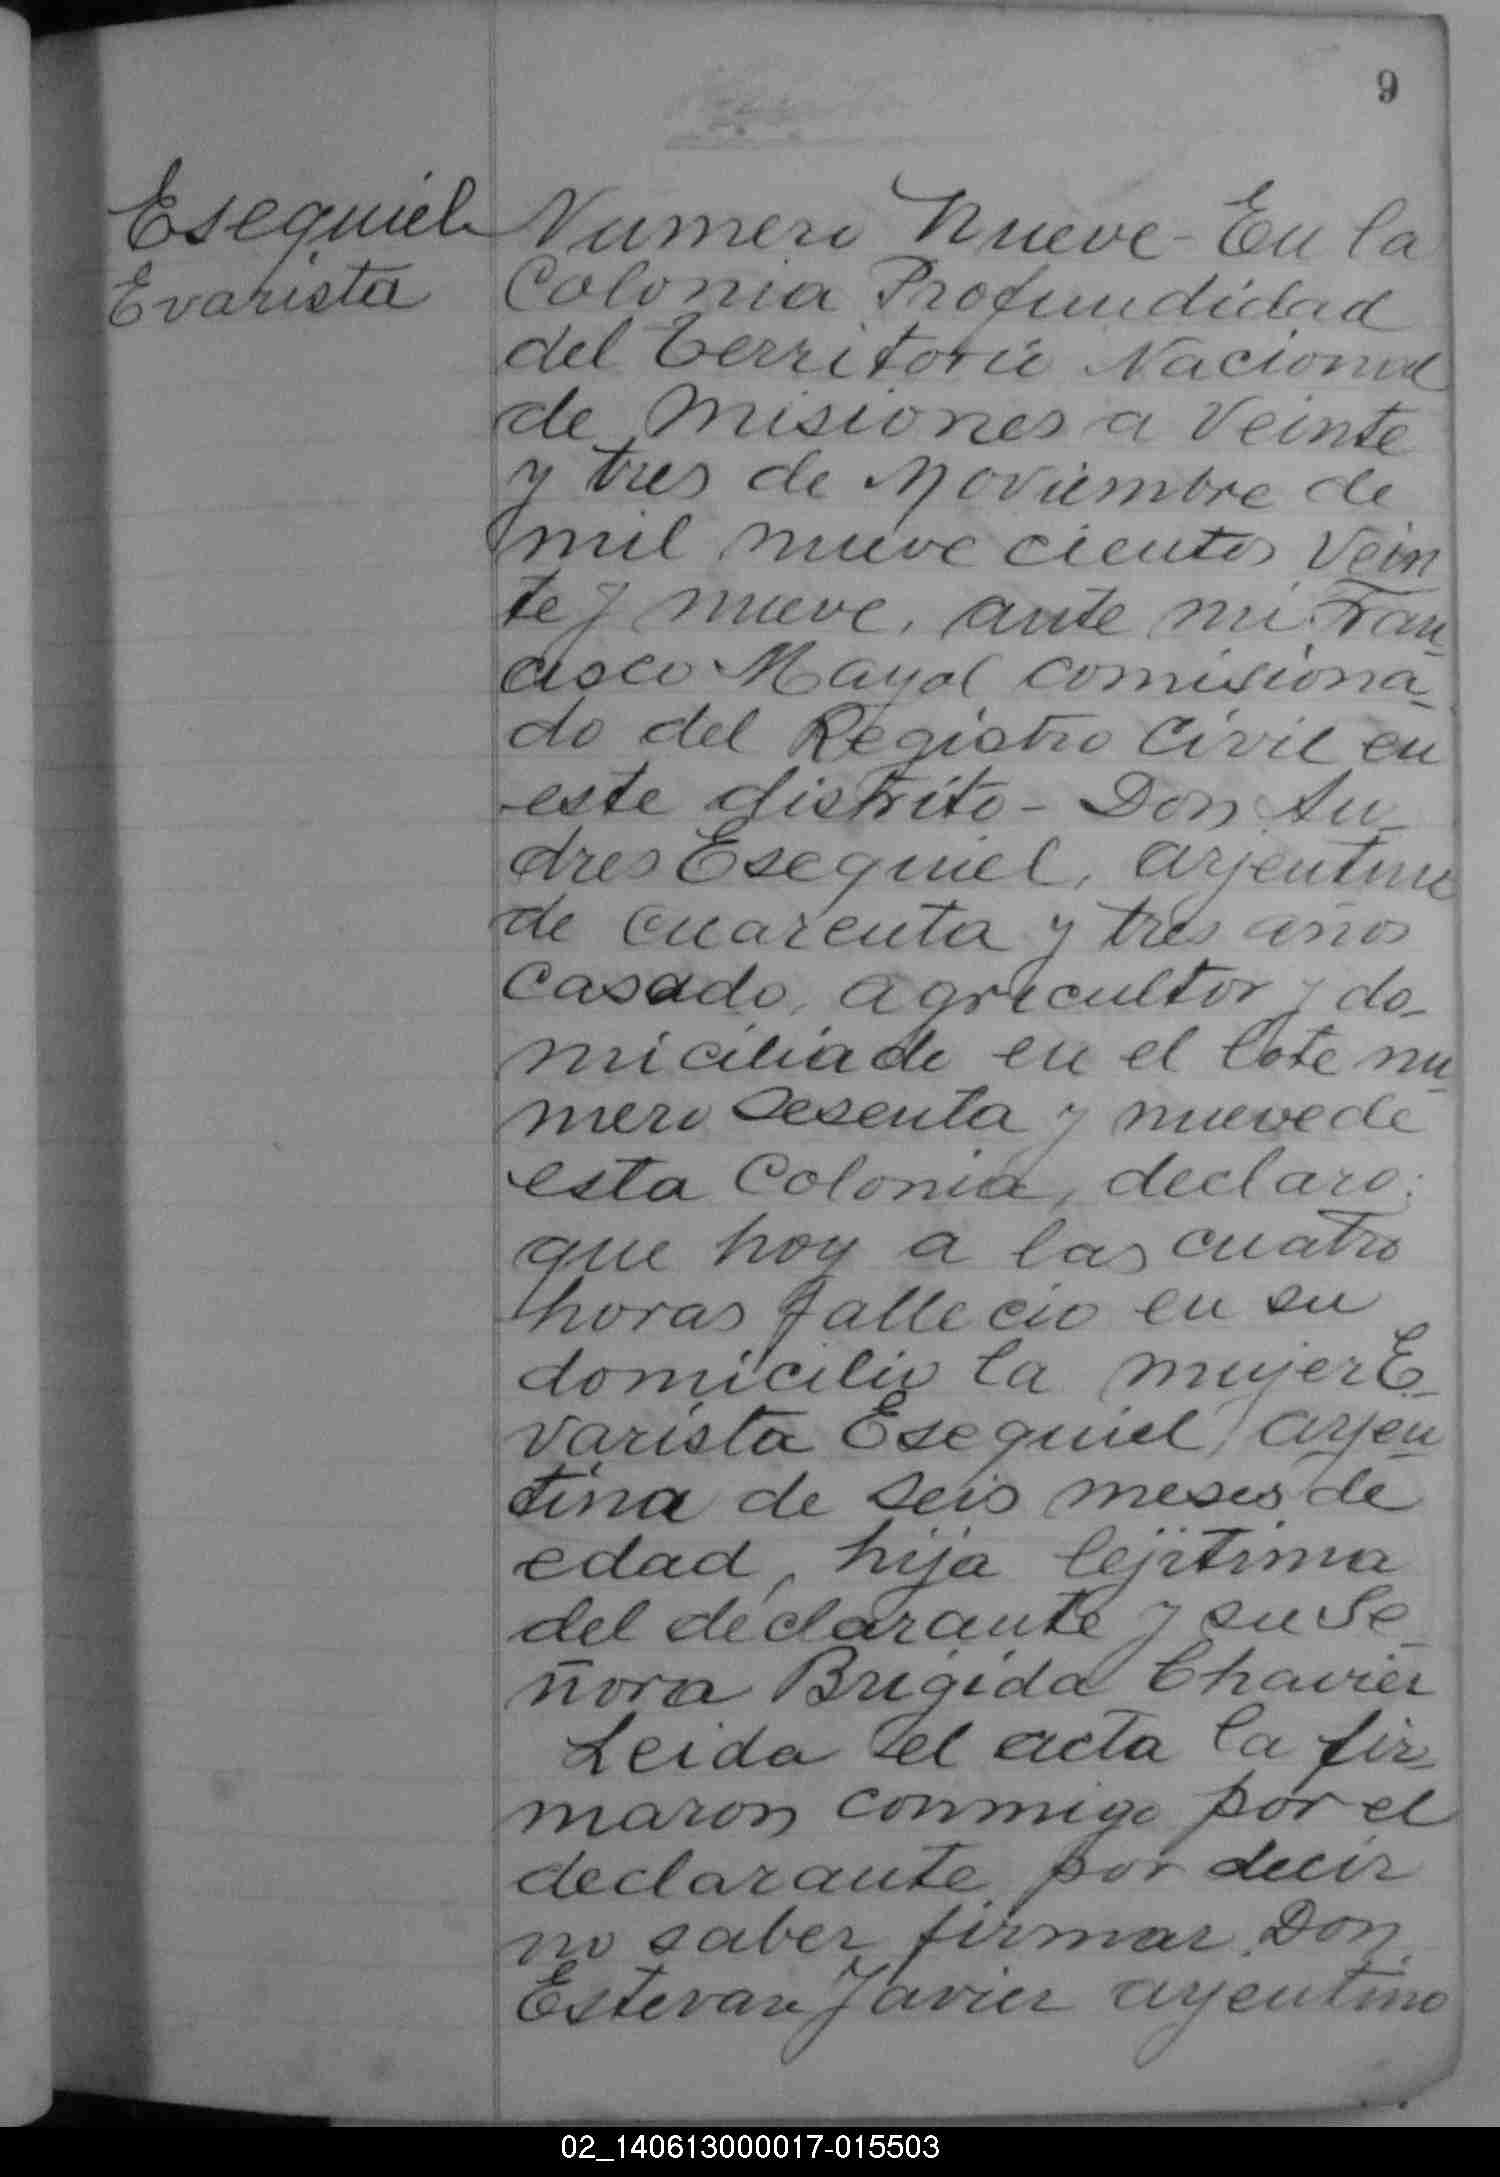 9
Esequiel
Evarista
Numero Nueve - En la
Colonia Profundidad
del Territorio Nacional
de Misiones a veinte
y tres de Noviembre de
mil nueve cientos vein
te y nueve, ante mi Fran_
cisco Mayol comisiona_
do del Registro Civil en
este distrito - Don An_
dres Esequiel, arjentino
de cuarenta y tres años
casado, agricultor y do_
miciliado en el lote nu_
mero sesenta y nueve de
esta Colonia, declaro:
que hoy a las cuatro
horas fallecio en su
domicilio la mujer E_
varista Esequiel, arjen_
tina de seis meses de
edad, hija lejitima
del declarante y su Se_
ñora Brigida Chavier
Leida el acta la fir_
maron conmigo por el
declarante por decir
no saber firmar Don
Estevan Javier arjentino
02_140613000017-015503